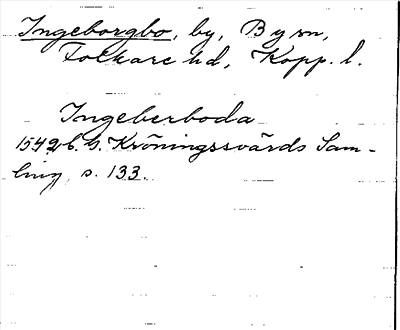 Ingeborgbo, by, By sn,
Folkare hd, Kopp. l.
Ingeberboda
1542 b. S. Kröningssvärds Sam-
ling, s. 133.